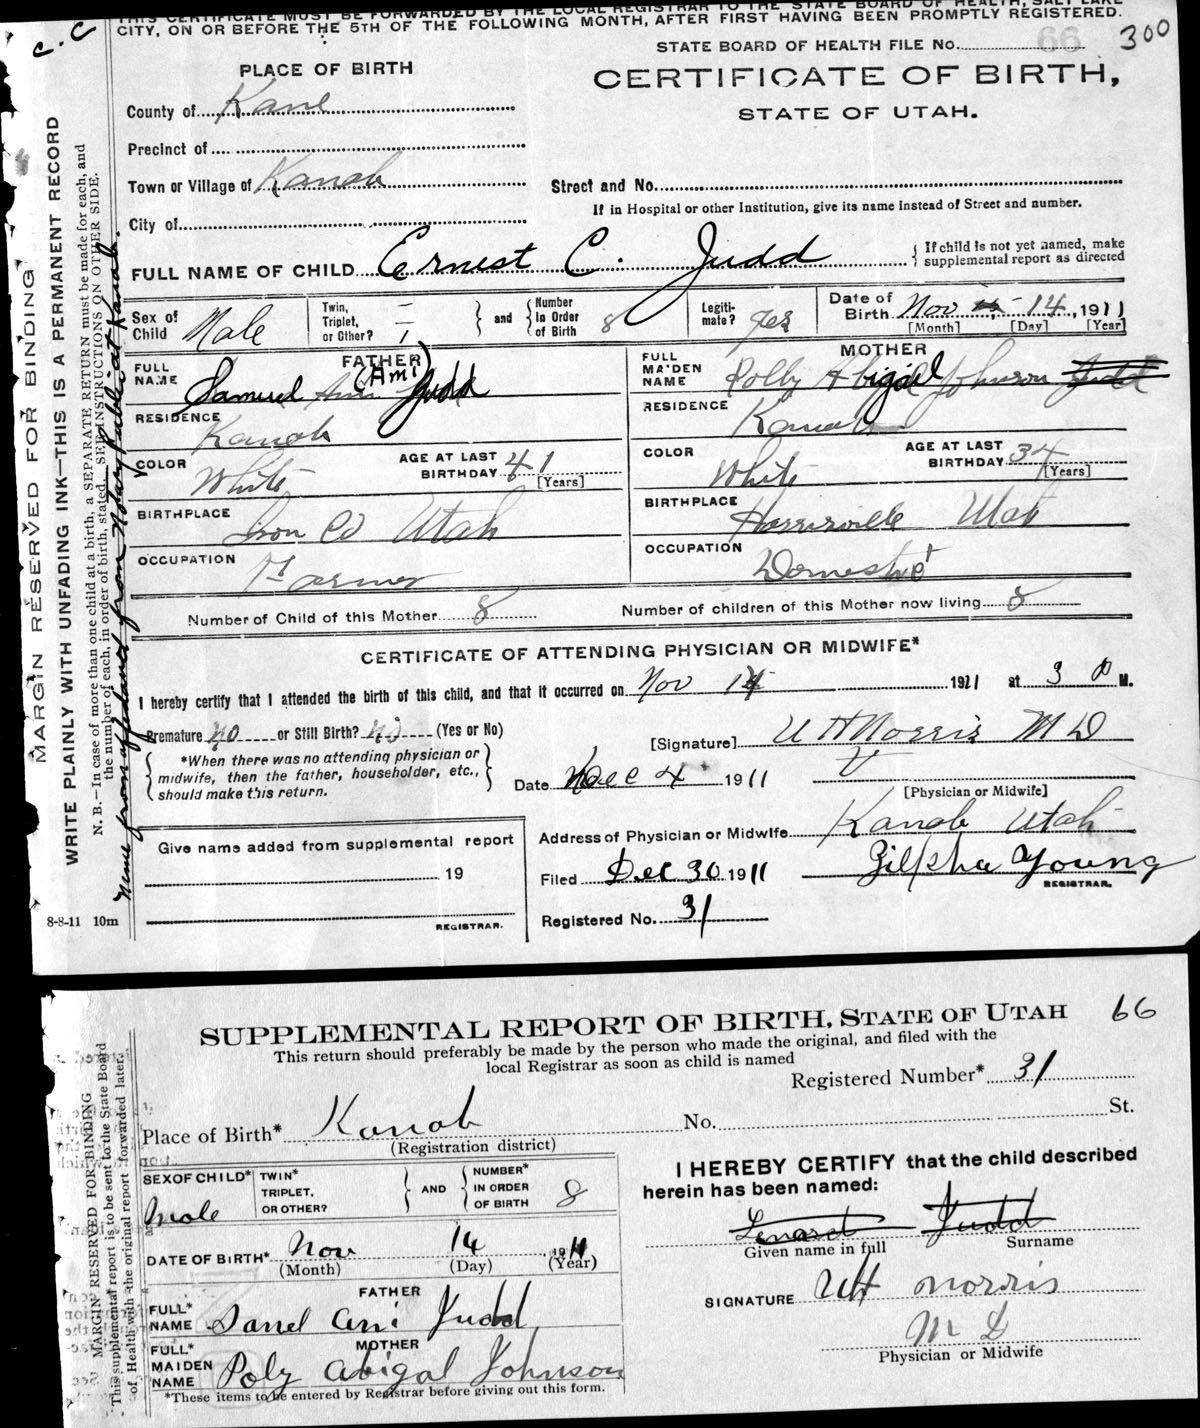 THIS CERTIFICATE MUST BE FORWARDED BY THE LOCAL REGISTRAR TO THE STATE BOARD OF HEALTH, SALT LAKE
CITY, ON OR BEFORE THE 5TH OF THE FOLLOWING MONTH, AFTER FIRST HAVING BEEN PROMPTLY REGISTERED.
C. C
STATE BOARD OF HEALTH FILE No. 66 300
PLACE OF BIRTH
CERTIFICATE OF BIRTH,
STATE OF UTAH.
County of Kane
Precinct of
Town or Village of Kanab
Street and No.
If in Hospital or other Institution, give its name instead of Street and number.
City of
FULL NAME OF CHILD Ernest C. Judd
If child is not yet named, make
supplemental report as directed
Sex of Child Male
Twin, Triplet, or Other?
and
Number In Order of Birth 8
Legiti-mate? yes
Date of Birth Nov 14, 1911
[Month] [Day] [Year]
FATHER
FULL NAME Samuel Ami (Ami) Judd
MOTHER
FULL MAIDEN NAME Polly Abigail Johnson Judd
RESIDENCE Kanab
RESIDENCE Kanab
COLOR White
AGE AT LAST BIRTHDAY 41 [Years]
COLOR White
AGE AT LAST BIRTHDAY 34 [Years]
BIRTHPLACE Iron Co Utah
BIRTHPLACE Harrisville Utah
OCCUPATION Farmer
OCCUPATION Domestic
Number of Child of this Mother 8
Number of children of this Mother now living 8
CERTIFICATE OF ATTENDING PHYSICIAN OR MIDWIFE*
I hereby certify that I attended the birth of this child, and that it occurred on Nov 14 1911 at 3 P M.
Premature No or Still Birth? No (Yes or No)
*When there was no attending physician or
midwife, then the father, householder, etc.,
should make this return.
[Signature] Norris M D
Date Dec 4 1911
[Physician or Midwife]
Address of Physician or Midwife Kanab Utah
Give name added from supplemental report
19
REGISTRAR.
Filed Dec 30 1911
Zilpha Young
REGISTRAR.
Registered No. 31
8-8-11 10m
MARGIN RESERVED FOR BINDING
WRITE PLAINLY WITH UNFADING INK—THIS IS A PERMANENT RECORD
N. B.—In case of more than one child at a birth, a SEPARATE RETURN must be made for each, and
the number of each, in order of birth, stated. SEE INSTRUCTIONS ON OTHER SIDE.
Name from affidavit from Notary Public at Kanab.
SUPPLEMENTAL REPORT OF BIRTH, STATE OF UTAH
66
This return should preferably be made by the person who made the original, and filed with the
local Registrar as soon as child is named
Registered Number* 31
Place of Birth* Kanab
(Registration district)
No. St.
SEX OF CHILD* Male
TWIN* TRIPLET, OR OTHER?
AND
NUMBER* IN ORDER OF BIRTH 8
I HEREBY CERTIFY that the child described
herein has been named:
Lenard Judd
Given name in full Surname
DATE OF BIRTH* Nov 14, 1911
(Month) (Day) (Year)
SIGNATURE Norris
M D
Physician or Midwife
FATHER
FULL* NAME Ami Judd
MOTHER
FULL* MAIDEN NAME Poly Abigal Johnson
*These items to be entered by Registrar before giving out this form.
MARGIN RESERVED FOR BINDING
This supplemental report is to be sent to the State Board
of Health with the original report forwarded later.